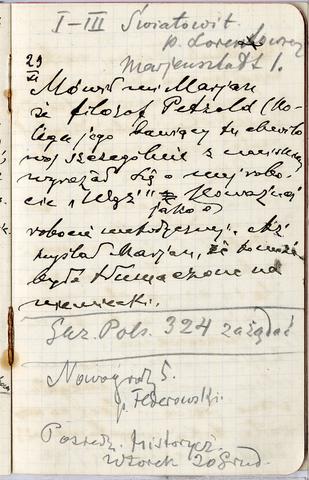 I–III Światowit.
p. Lorentzowej
Marjensztadt 1.
29
XI
Mówił mi Marjan
że filozof Petzold (ko-
lega jego bawiący tu chwilo-
wo) szczególnie z
wyrażał się o mej robo-
cie "Wąż" jako
robocie metodycznej. Ażż
myślał Marjan, że
była tłumaczone na
niemiecki.
Gaz. Pols. 324 zażądać
Nowogrodz 5.
p. Federowski.
Posiedz. history.
wtorek 20 Grud.